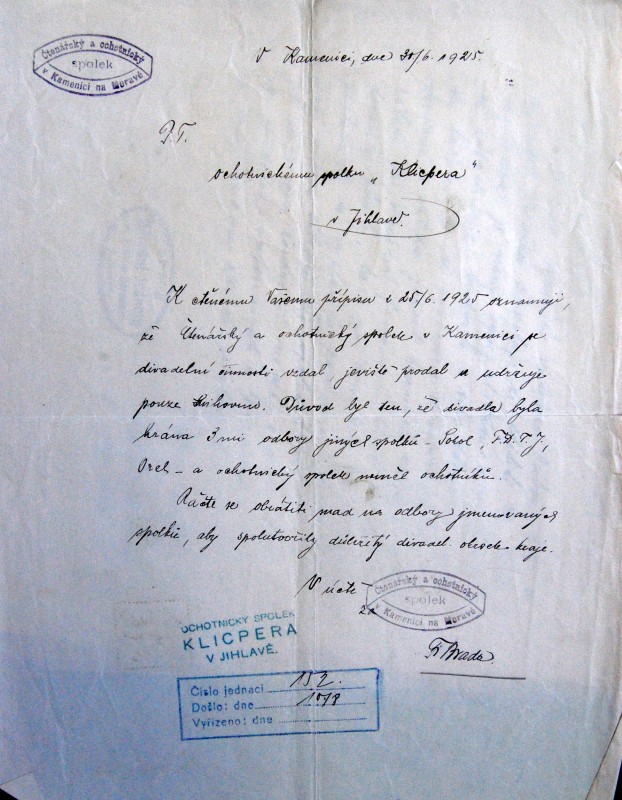 Čtenářský a ochotnický
spolek
v Kamenici na Moravě
V Kamenici, dne 30/6. 1925.
P.T.
ochotnickému spolku „Klicpera“
v Jihlavě.
K ctěnému Vašemu přípisu z 25/6. 1925 oznamuji,
že Čtenářský a ochotnický spolek v Kamenici se
divadelní činnosti vzdal jeviště prodal a udržuje
pouze knihovnu. Důvod byl ten, že divadla byla
hrána 3mi odbory jiných spolků - Sokol, F.D.T.J,
Orel - a ochotnický spolek neměl ochotníků.
Račte se obrátiti snad na odbory jmenovaných
spolků, aby spolutvořily důležitý divadel. okrsek kraje.
V úctě
za
Čtenářský a ochotnický
spolek
v Kamenici na Moravě
Fr Brada.
OCHOTNICKÝ SPOLEK
KLICPERA
V JIHLAVĚ.
Číslo jednací 152.
Došlo: dne
Vyřízeno: dne